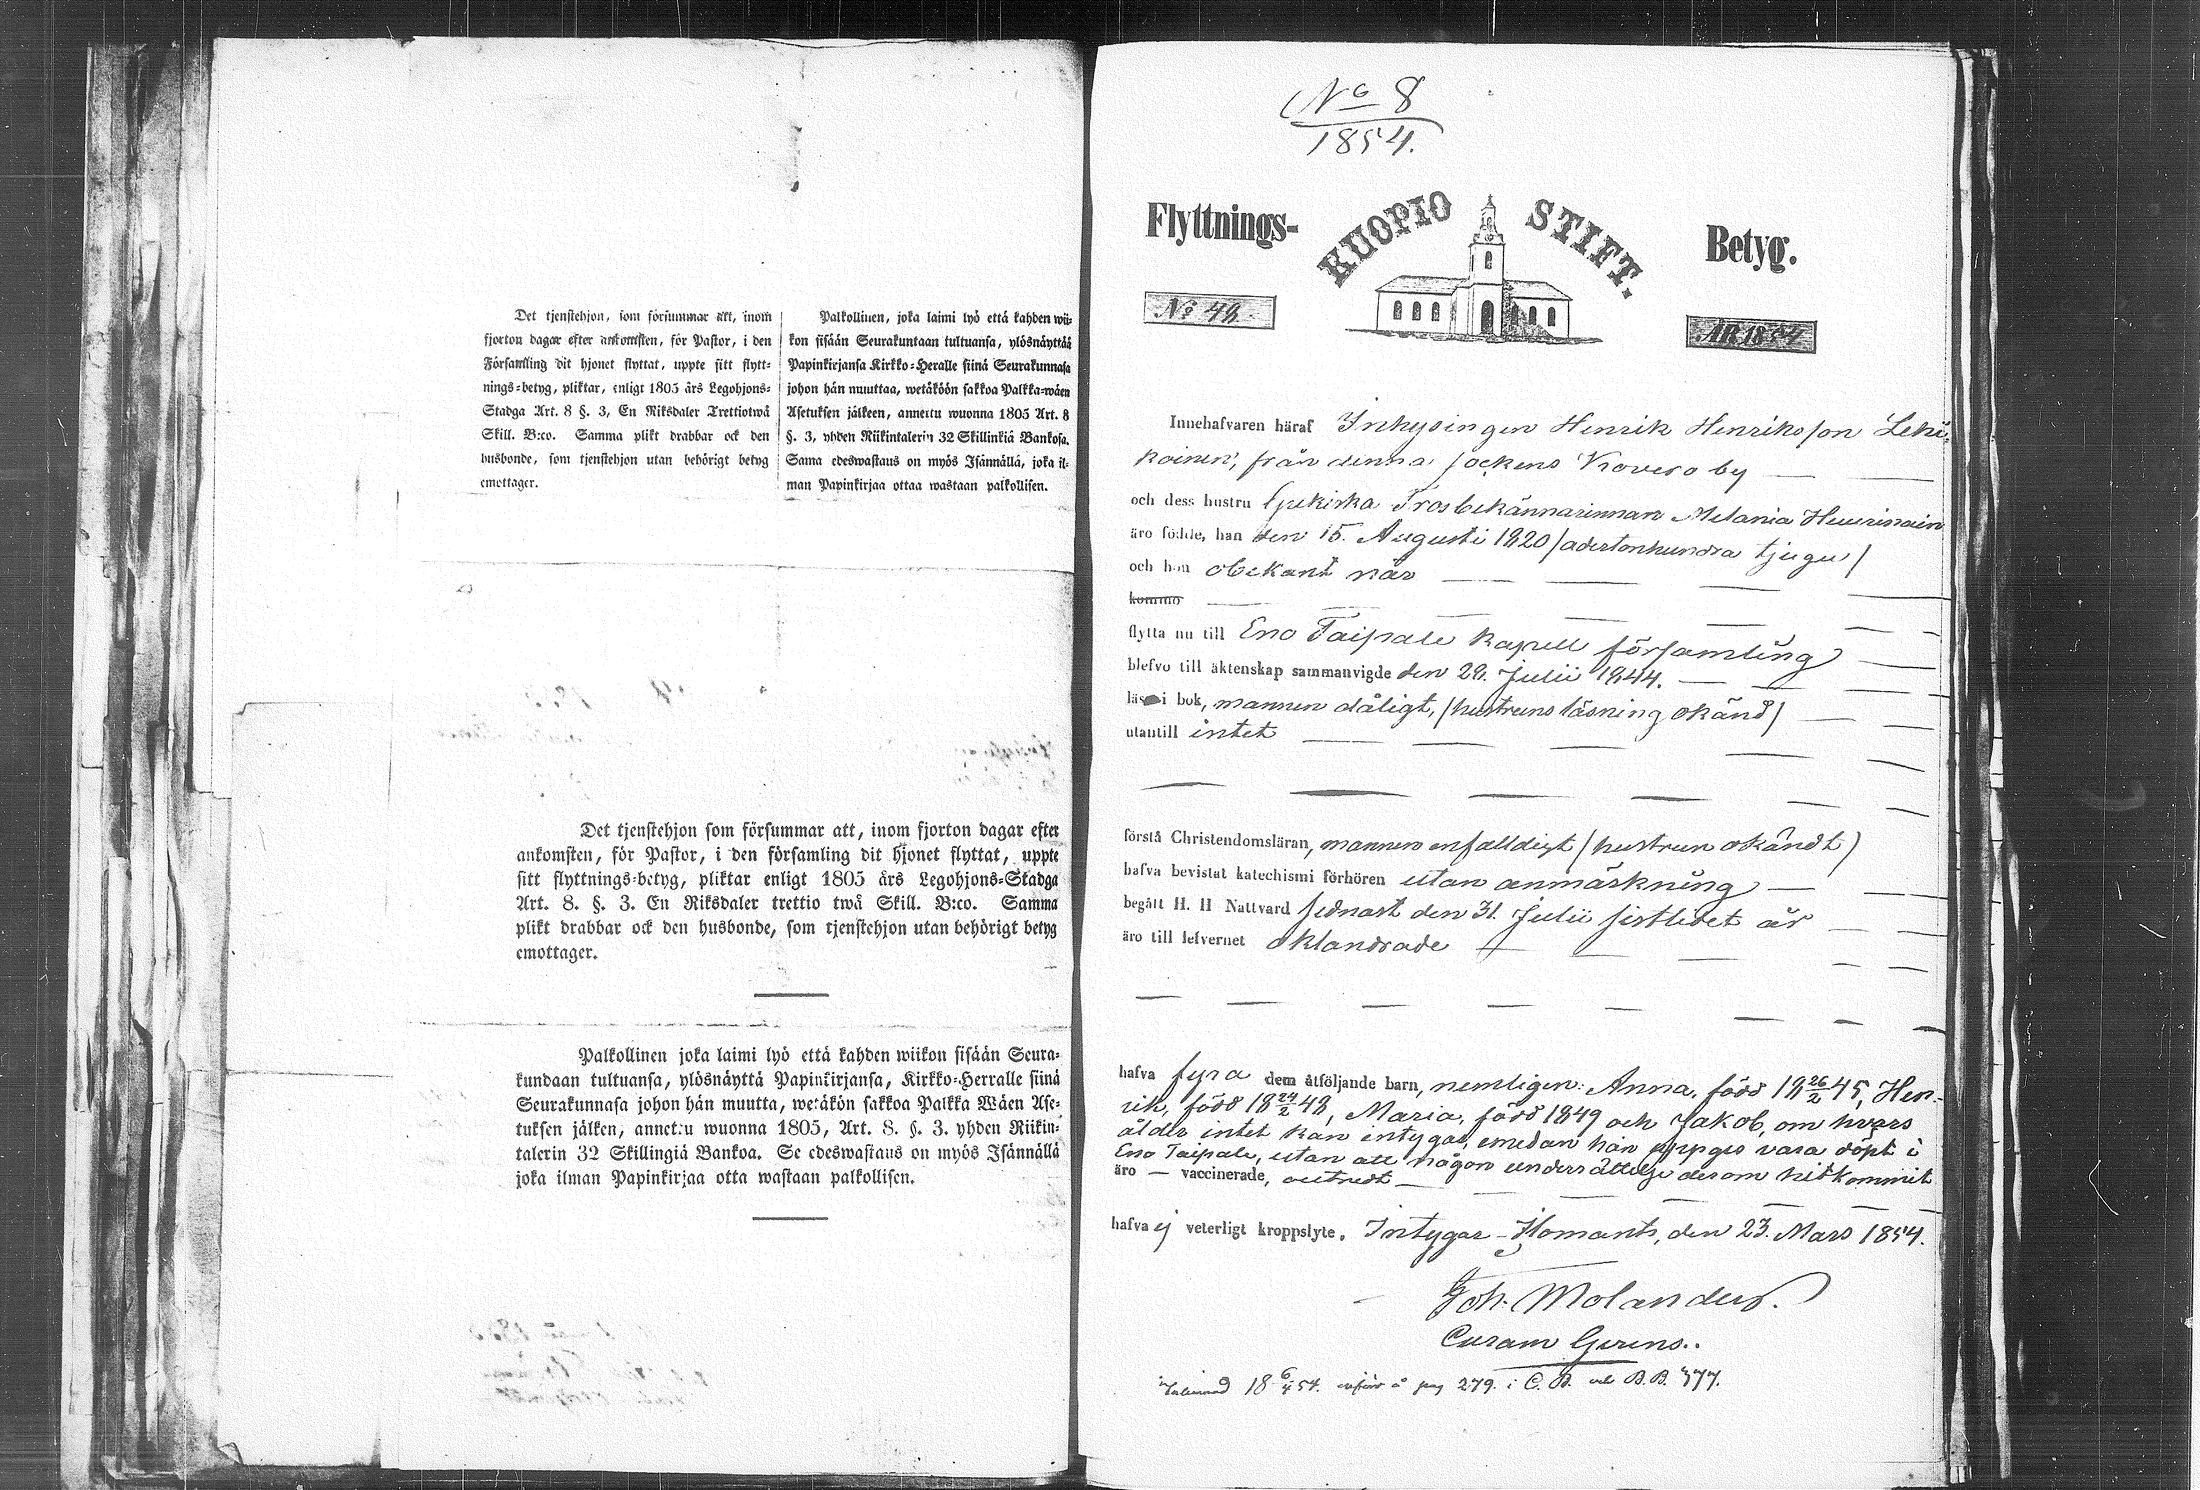 Det tjenstehjon, som försummar att, inom
fjorton dagar efter ankomsten, för Pastor, i den
Församling dit hjonet flyttat, uppte sitt flytt-
nings-betyg, pliktar, enligt 1805 års Legohjons-
Stadga Art. 8 §. 3, En Riksdaler Trettiotwå
Skill. B:co. Samma plikt drabbar ock den
husbonde, som tjenstehjon utan behörigt betyg
emottager.
Palkollinen, joka laimi lyö että kahden wii-
kon sisään Seurakuntaan tultuansa, ylösnäyttää
Papinkirjansa Kirkko-Heralle siinä Seurakunnasa
johon hän muuttaa, wetäköön sakkoa Palkka-wäen
Asetuksen jälkeen, annettu wuonna 1805 Art. 8
§. 3, yhden Riikintalerin 32 Skillinkiä Bankosa.
Sama edeswastaus on myös Isännällä, joka il-
man Papinkirjaa ottaa wastaan palkollisen.
Det tjenstehjon som försummar att, inom fjorton dagar efter
ankomsten, för Pastor, i den församling dit hjonet flyttat, uppte
sitt flyttnings-betyg, pliktar enligt 1805 års Legohjons-Stadga
Art. 8. §. 3. En Riksdaler trettio twå Skill. B:co. Samma
plikt drabbar ock den husbonde, som tjenstehjon utan behörigt betyg
emottager.
Palkollinen joka laimi lyö että kahden wiikon sisään Seura-
kundaan tultuansa, ylösnäyttä Papinkirjansa, Kirkko-Herralle siinä
Seurakunnasa johon hän muutta, wetäkön sakkoa Palkka Wäen Ase-
tuksen jälken, annettu wuonna 1805, Art. 8. §. 3. yhden Riikin-
talerin 32 Skillingiä Bankoa. Se edeswastaus on myös Isännällä
joka ilman Papinkirjaa otta wastaan palkollisen.
No 8
1854.
Flyttnings- KUOPIO STIFT. Betyg.
No 48.
ÅR 1854
Innehafvaren häraf Inhysingen Henrik Henriksson Leki-
koinen, från denna sockens Kovero by
och dess hustru Grekiska Trosbekännarinnan Melania Heuerinain
äro födde, han den 15. Augusti 1820 /adertonhundra tjugu/
och hon obekant när
kommo
flytta nu till Eno Taipale Kapell församling
blefvo till äktenskap sammanvigde den 29. Julii 1844.
läsa i bok, mannen dåligt, /hustruns läsning okänd/
utantill intet
förstå Christendomsläran, mannen enfalldigt /hustrun okändt/
hafva bevistat katechismi förhören utan anmärkning
begått H. H Nattvard sednast den 31. Julii sistledet år
äro till lefvernet oklandrade
hafva fyra dem åtföljande barn, nemligen: Anna, född 18 26/2 45, Hen-
rik, född 18 24/2 48, Maria, född 1849 och Jakob, om hvars
ålder intet kan intygas, emedan han uppges vara döpt i
Eno Taipale, utan att någon underrättelse derom hitkommit
äro — vaccinerade, outredt
hafva ej veterligt kroppslyte. Intygar Ilomants, den 23. Mars 1854.
Joh. Molander.
Curam Gerens.
18 6/4 54. införd å pag 279. i C. B. och B.B. 377.